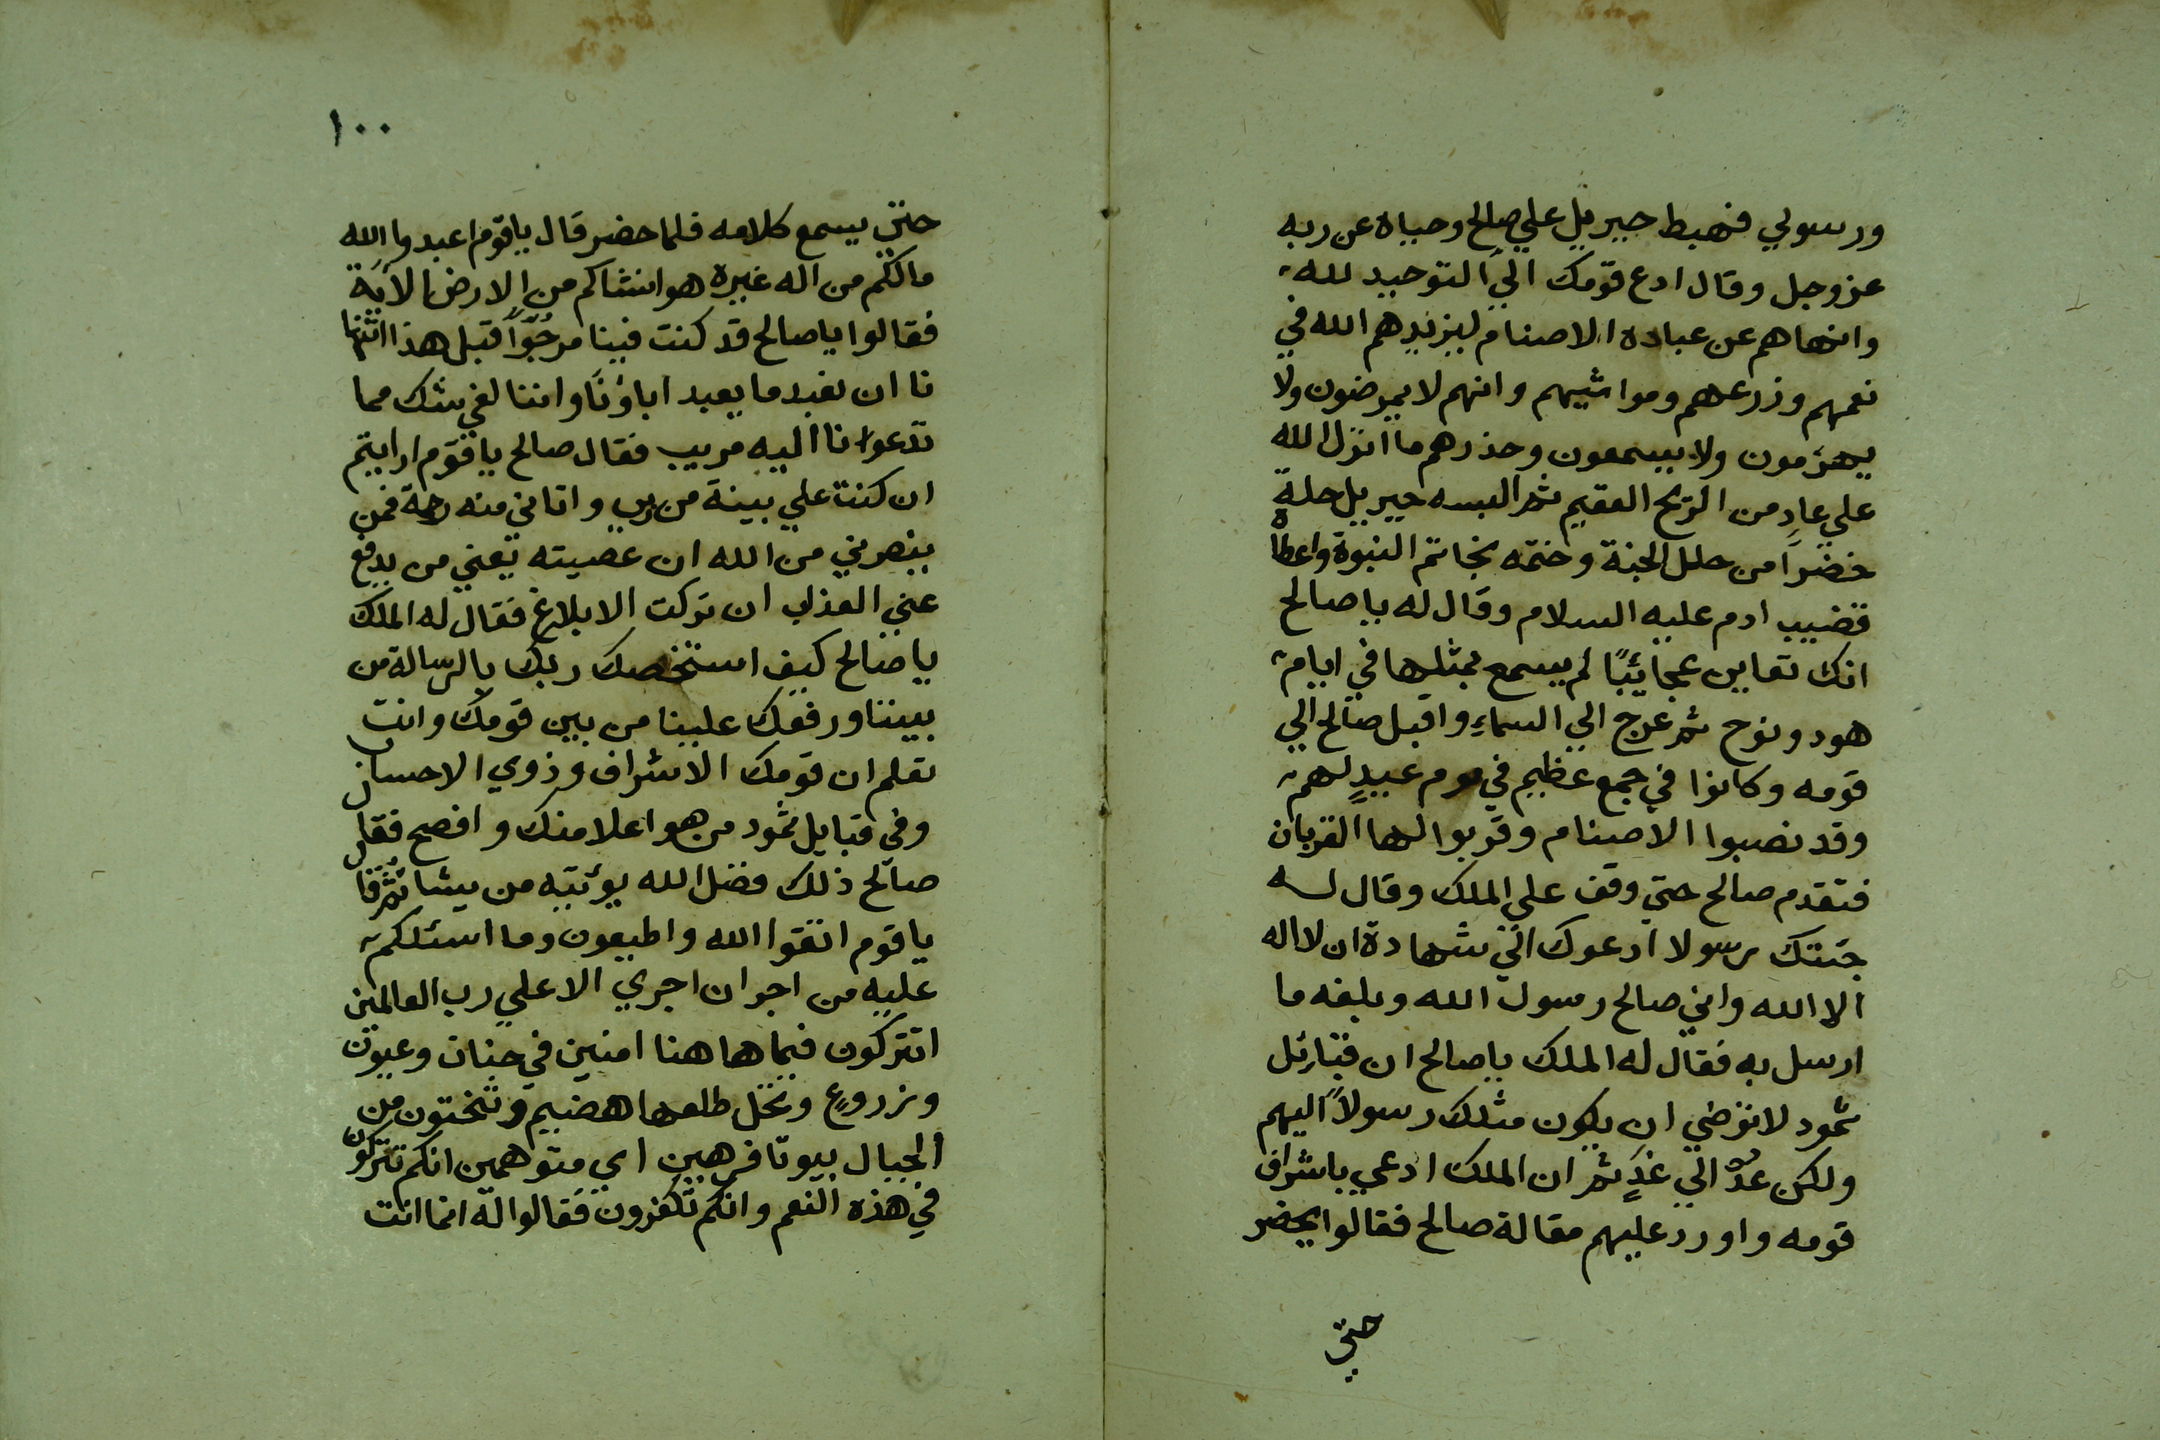 ورسولي فهبط جبريل علي صالح وحياه عن ربه
عز وجل وقال ادع قومك الي التوحيد لله
وانهاهم عن عبادة الاصنام ليزيدهم الله في
نعمهم وزرعهم ومواشيهم وانهم لا يمرضون ولا
يهرمون ولا يسمعون وحذرهم ما انزل الله
علي عادٍ من الريح العقيم ثم البسه جبريل حلة
خضرآ من حلل الجنة وختمه بخاتم النبوة واعطاه
قضيب ادم عليه السلام وقال له يا صالح
انك تعاين عجائبًا لم يسمع بمثلها في ايام
هود ونوح ثم عرج الي السماءِ واقبل صالح الي
قومه وكانوا في جمع عظيم في يوم عيدٍ لهم
وقد نصبوا الاصنام وقربوا لها القربان
فتقدم صالح حتي وقف علي الملك وقال له
جئتك رسولا ادعوك الي شهادة ان لا اله
الا الله واني صالح رسول الله وبلغه ما
ارسل به فقال له الملك يا صالح ان قبائل
ثمود لا ترضي ان يكون مثلك رسولاً اليهم
ولكن عدْ الي غدٍ ثم ان الملك ادعي باشراف
قومه واورد عليهم مقالة صالح فقالوا يحضر
حتي
١٠٠
حتي يسمع كلامه فلما حضر قال يا قوم اعبدوا الله
مالكم من اله غيره هو انشاكم من الارض الاية
فقالوا يا صالح قد كنت فينا مرجُوّاً قبل هذا اتنها
نا ان نعبد ما يعبد اباؤنا واننا لفي شك مما
تدعوانا اليه مريب فقال صالح يا قوم ارايتم
ان كنت علي بينة من ربي واتاني منه رحمة فمن
ينصرني من الله ان عصيته يعني من يدفع
عني العذاب ان تركت الابلاغ فقال له الملك
يا صالح كيف استخصك ربك بالرسالة من
بيننا ورفعك علينا من بين قومك وانت
تعلم ان قومك الاشراف وذوي الاحسان
وفي قبايل ثمود من هو اعلا منك وافصح فقال
صالح ذلك فضل الله يؤتيه من يشا ثم قال
يا قوم اتقوا الله واطيعون وما اسئلكم
عليه من اجر ان اجري الا علي رب العالمين
اتتركون فيما هاهنا امنين في جنات وعيون
وزروعٍ ونخل طلعها هضيم وتنحتون من
الجبال بيوتا فرهين اي متوهمين انكم تتركون
في هذه النعم وانكم تكفرون فقالوا له انما انت